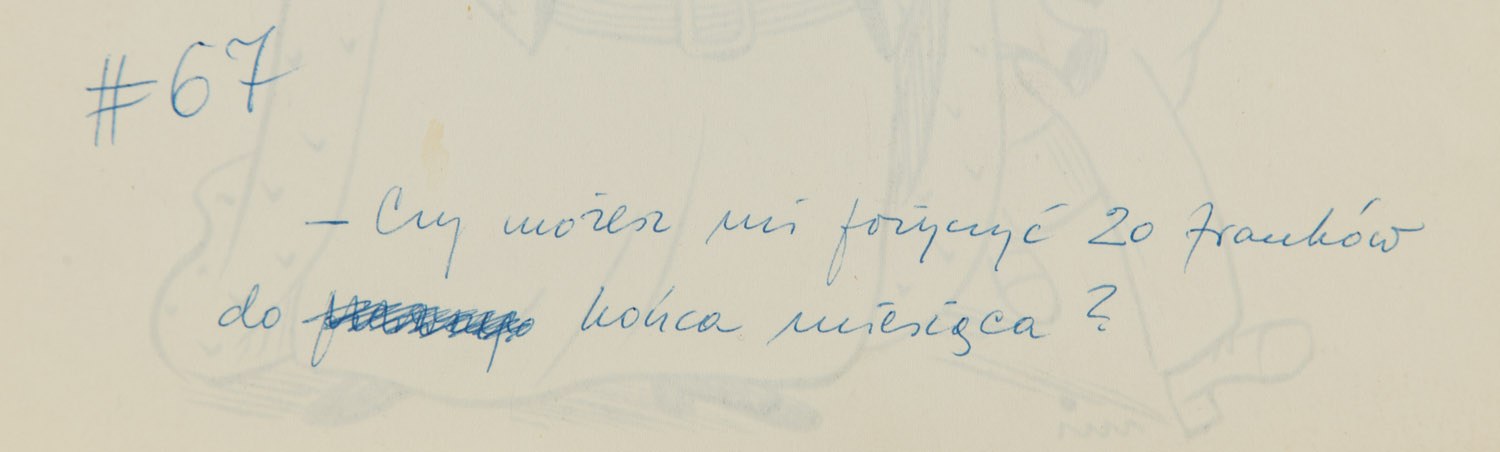 #67
– Czy możesz mi pożyczyć 20 franków
do końca miesiąca?